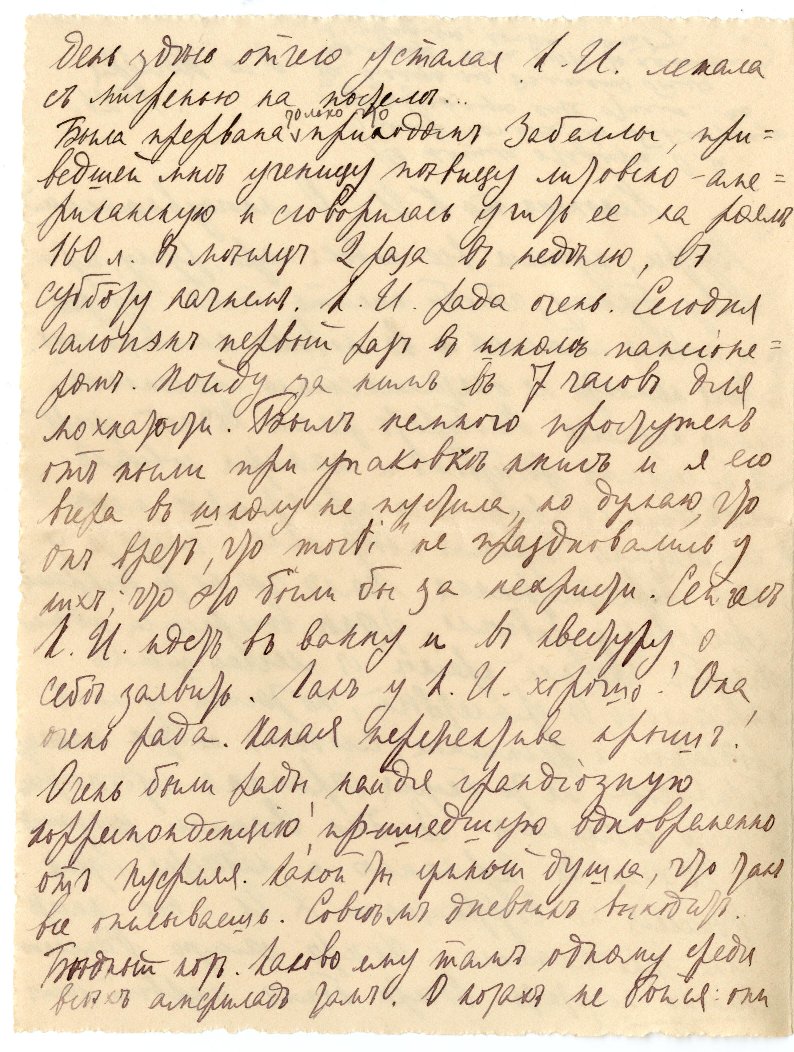 день здѣсь отчего усталая Л.И. лежала
съ мигренью на постели...
Была прервана только что приходомъ Забеллы, при=
ведшей мнѣ ученицу пѣвицу литовско-аме=
риканскую и сговорилась учить ее за
160 л. въ мѣсяцъ 2 раза въ недѣлю, въ
субботу начнемъ. Л.И. рада очень. Сегодня
первый разъ въ школѣ пансіоне=
ромъ. Пойду за нимъ въ 7 часовъ для
Былъ немного простуженъ
отъ пыли при упаковкѣ книгъ и я его
вчера въ школу не пустила, но думаю, что
онъ вретъ, что "morti" не праздновались у
нихъ; что это были бы за нехристи. Сейчасъ
Л.И. идетъ въ ванну и въ квестуру о
себѣ заявить. Какъ у Л.И. хорошо! Она
очень рада. Какая перспектива крышъ!
Очень были рады найдя грандіозную
корреспонденцію, пришедшую одновременно
отъ Пустыля. Какой ты душка, что такъ
все описываешь. Совсѣмъ дневникъ выходитъ.
Бѣдный котъ. Каково ему тамъ одному среди
всѣхъ тамъ. О котахъ не бойся: они